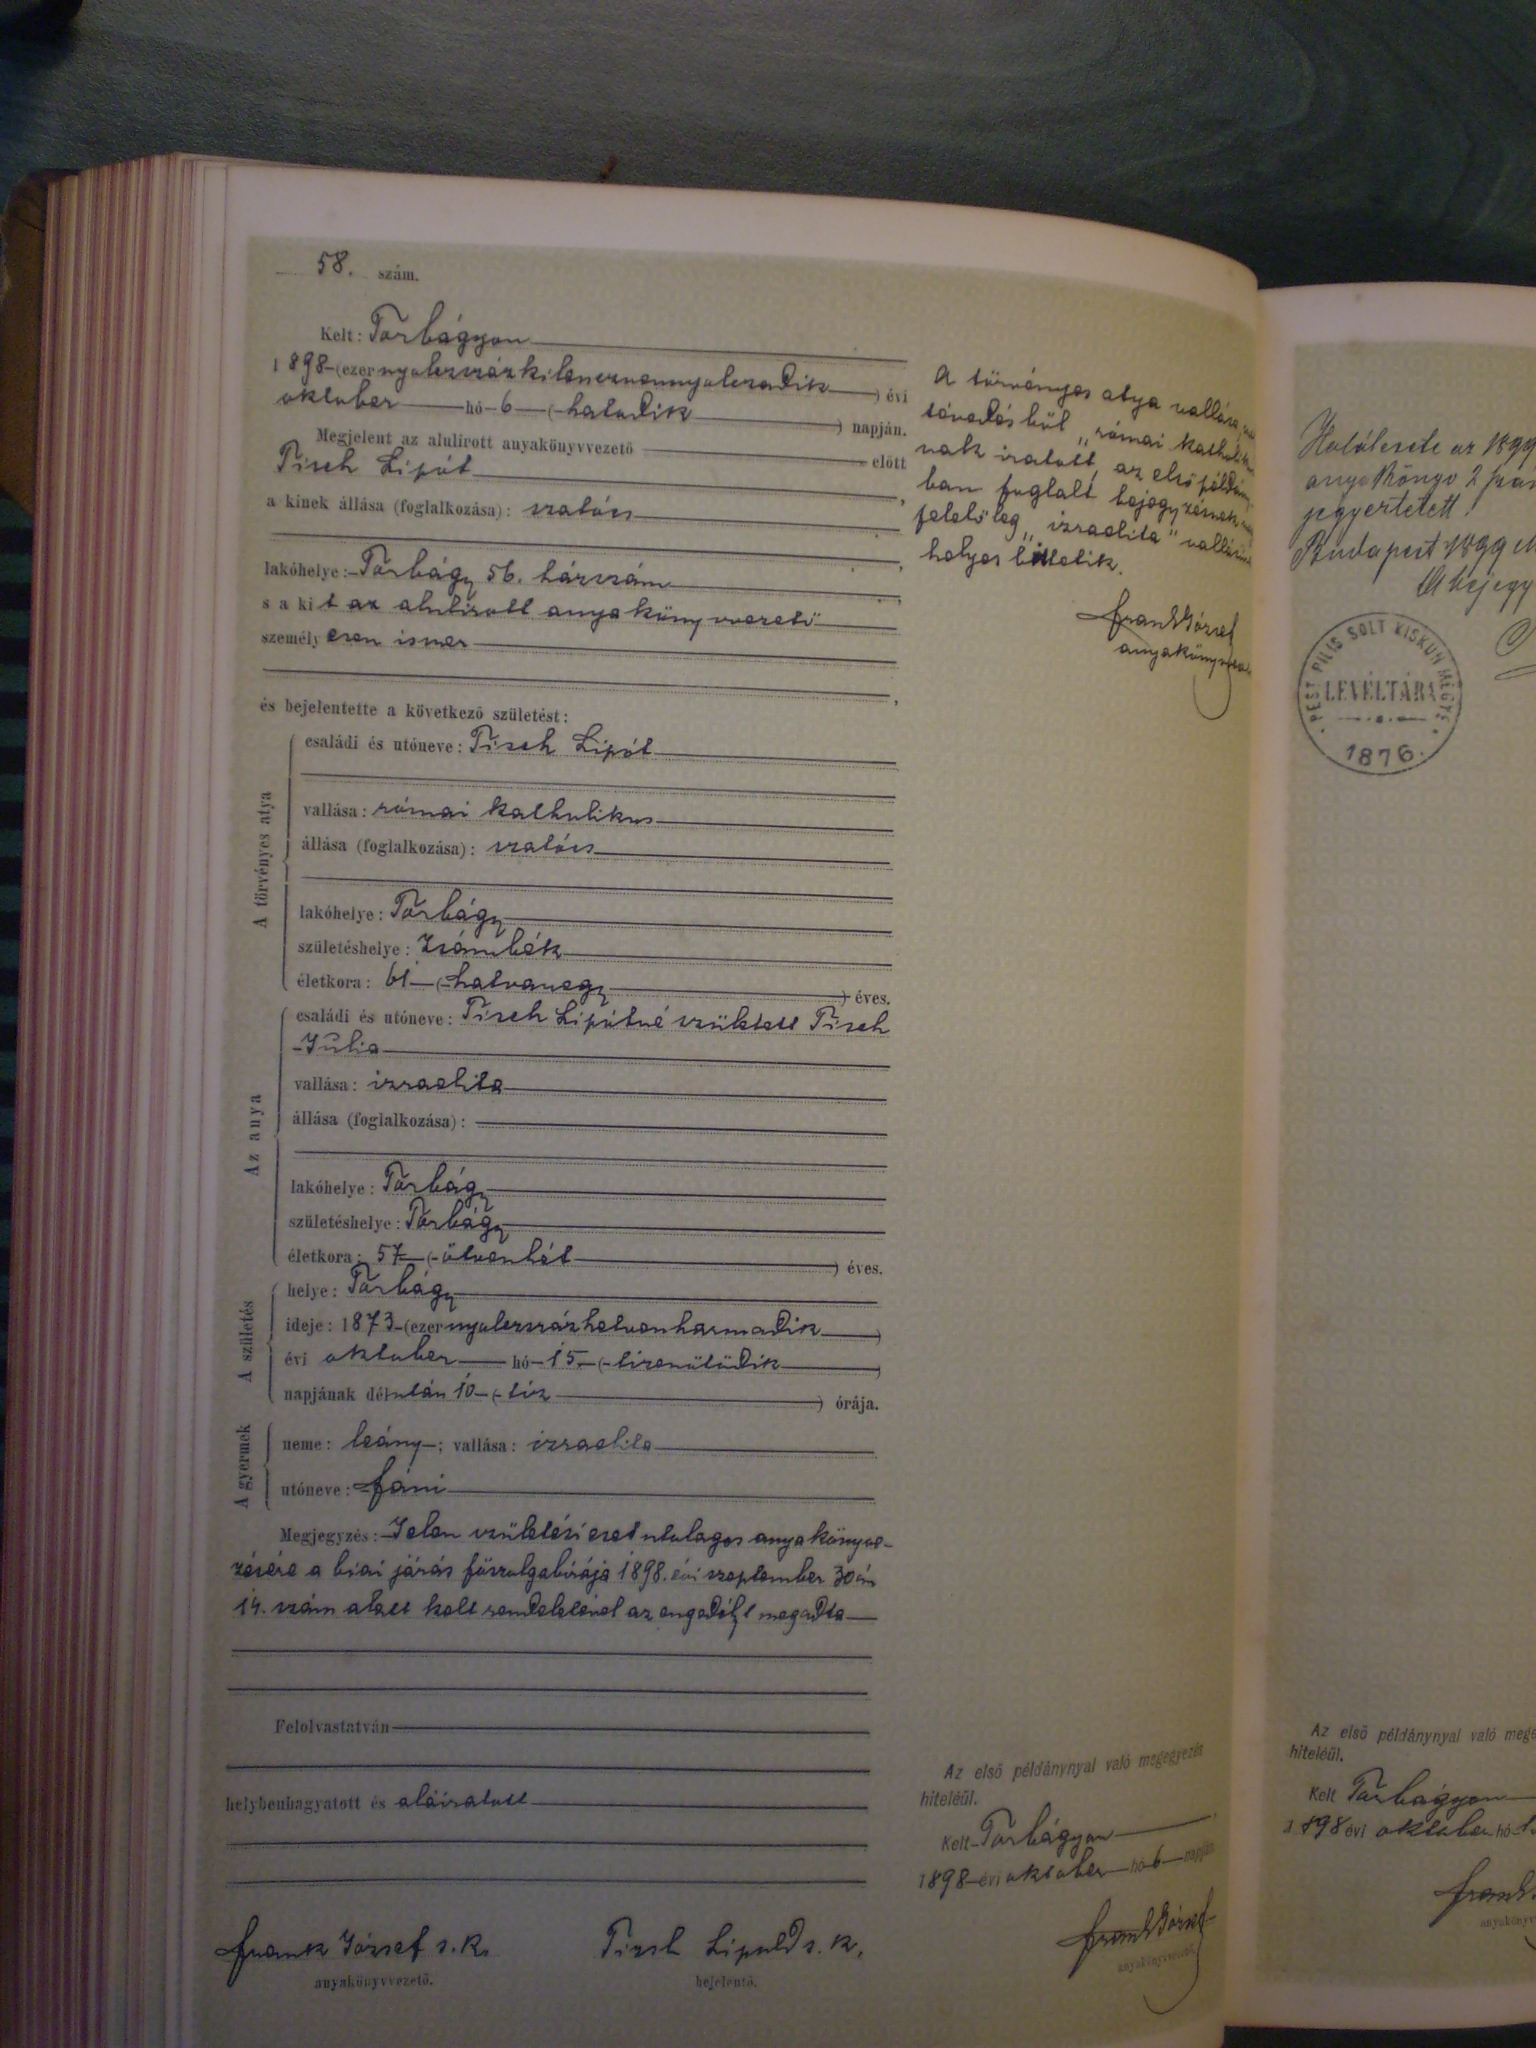 58. szám.
Kelt: Torbágyon
1898 (ezernyolczszázkilenczvennyolczadik) évi
oktober hó 6 (hatodik) napján.
Megjelent az alulírott anyakönyvvezető előtt
Tisch Lipót,
a kinek állása (foglalkozása): szatócs
lakóhelye: Torbágy 56. házszám,
s a kit az alulirott anyakönyvvezető
személyesen ismer,
és bejelentette a következő születést:
A törvényes atya
családi és utóneve: Tisch Lipót
vallása: római katholikus
állása (foglalkozása): szatócs
lakóhelye: Torbágy
születéshelye: Zsámbék
életkora: 61 (hatvanegy) éves.
Az anya
családi és utóneve: Tisch Lipótné született Tisch
Julia
vallása: izraelita
állása (foglalkozása):
lakóhelye: Torbágy
születéshelye: Torbágy
életkora: 57 (ötvenhét) éves.
A születés
helye: Torbágy
ideje: 1873 (ezernyolczszázhetvenharmadik)
évi oktober hó 15 (tizenötödik)
napjának délután 10 (tíz) órája.
A gyermek
neme: leány; vallása: izraelita
utóneve: Fáni
Megjegyzés: Jelen születési eset utolagos anyakönyve-
zésére a biai járás főszolgabirája 1898. évi szeptember 30án
14. szám alatt kelt rendeletével az engedélyt megadta
Felolvastatván
helybenhagyatott és aláiratott
Frank József s. k.
anyakönyvvezető.
Tisch Lipold s. k.
bejelentő.
A törvényes atya vallása
tévedésből „római katholikus
nak iratott, az első példány
ban foglalt bejegyzésnek
felelőleg „izraelita" vallásúnak
helyesbittetik.
Frank József
anyakönyvvez.
Az első példánynyal való megegyezés
hiteléül.
Kelt Torbágyon
1898 évi oktober hó 6 napján
Frank József
anyakönyvvezető.
Halálesete az 1899
anyakönyv 2
jegyeztetett.
Budapest 1899
A bejegy
PEST PILIS SOLT KISKUN MEGYE
LEVÉLTÁRA
1876.
Az első példánynyal való mege
hiteléül.
Kelt Torbágyon
1898 évi oktober hó
Frank
anyakönyv